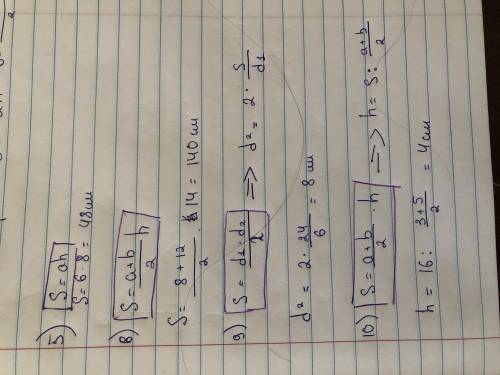 5) S = ah
S = 6 · 8 = 48 см
8) S = a+b/2 h
S = 8 + 12/2 · 14 = 140 см
9) S = d1 · d2/2 => d² = 2 · S/d1
d² = 2 · 24/6 = 8 см
10) S = a+b/2 · h => h = S : a+b/2
h = 16 : 3+5/2 = 4 см